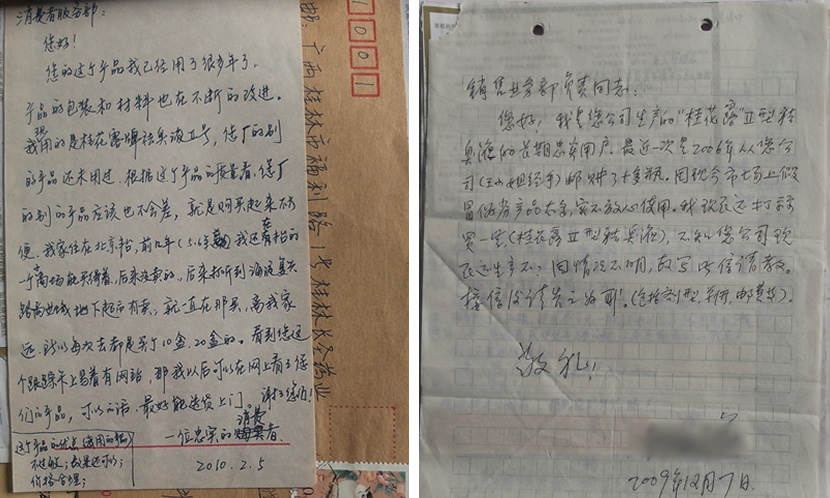 消费者服务部:
您好!
您的这个产品我已经用了很多年了。
产品的包装和材料也在不断的改进。
我用的是桂花露牌祛臭液Ⅱ号,您厂的别
的产品还未用过,根据这个产品的质量看,您厂
的别的产品应该也不会差,就是购买起来不方
便。我家住在北京
一个商场能买得着,后来没卖的,后来打听到海淀
地下超市有卖,就一直在那买,离我家
远,所以每次去都是买个10盒、20盒的。看到您这
个跟踪卡上写着有网站,那我以后可以在网上看了您
们的产品,可以的话,最好能送货上门。谢谢您们!
一位忠实的消费者
2010.2.5
这个产品的优点
不过敏;效果还可以;
价格合理;
1001
邮:广西桂林市福利路1号桂林长圣药业
销售业务部负责同志:
您好,我是您公司生产的“桂花露”Ⅱ型祛
臭液的长期忠实用户,最近一次是2006年从您公
司邮购了十多瓶。因现今市场上假
冒伪劣产品太多,实不放心使用。我现在还打算
买一些(桂花露Ⅱ型祛臭液),不知您公司现
在还生产不?因情况不明,故写此信请教。
接信后请告之为盼。(包括剂型、邮费等)。
敬礼!
2009年12月7日